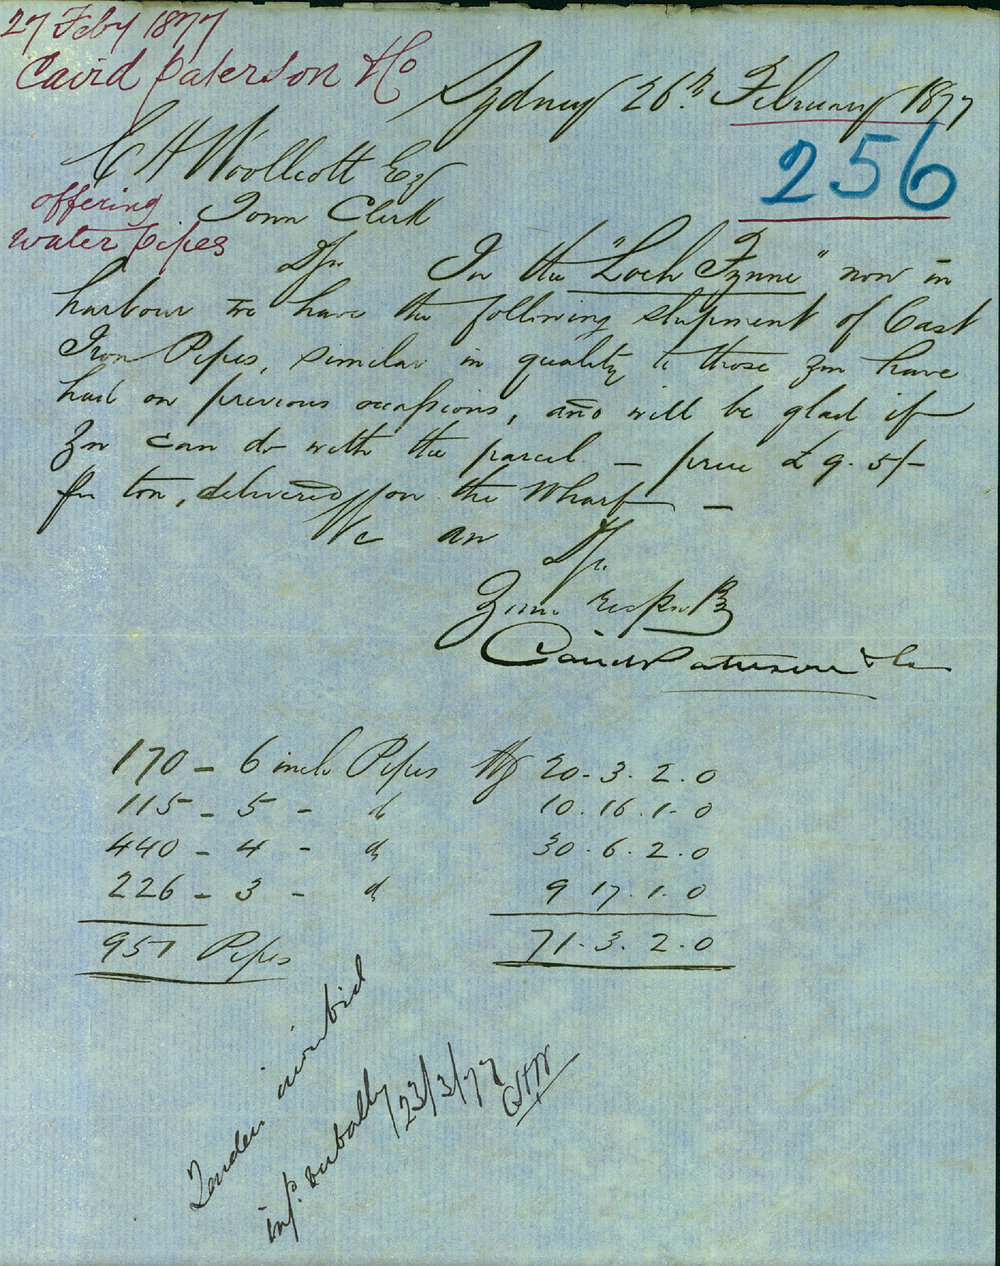 27 Feby 1877
Caird Paterson & Co
Sydney 26th February 1877
256
C H Woollcott Esq
offering
Town Clerk
water pipes
Sir In the "Loch Fynne" now in
harbour we have the following shipment of Cast
Iron Pipes, similar in quality to those you have
had on previous occasions, and will be glad if
you can do with the parcel – price £9.5/-
per ton, delivered on the Wharf –
We are
Sir
Your respectly
Caird Paterson & Co
170 – 6 inch Pipes Wg 20.3.2.0
115 – 5 – do 10.16.1.0
440 – 4 – do 30.6.2.0
226 – 3 – do 9.17.1.0
951 Pipes 71.3.2.0
Tenders invited
infd. verbally 23/3/77 CHW